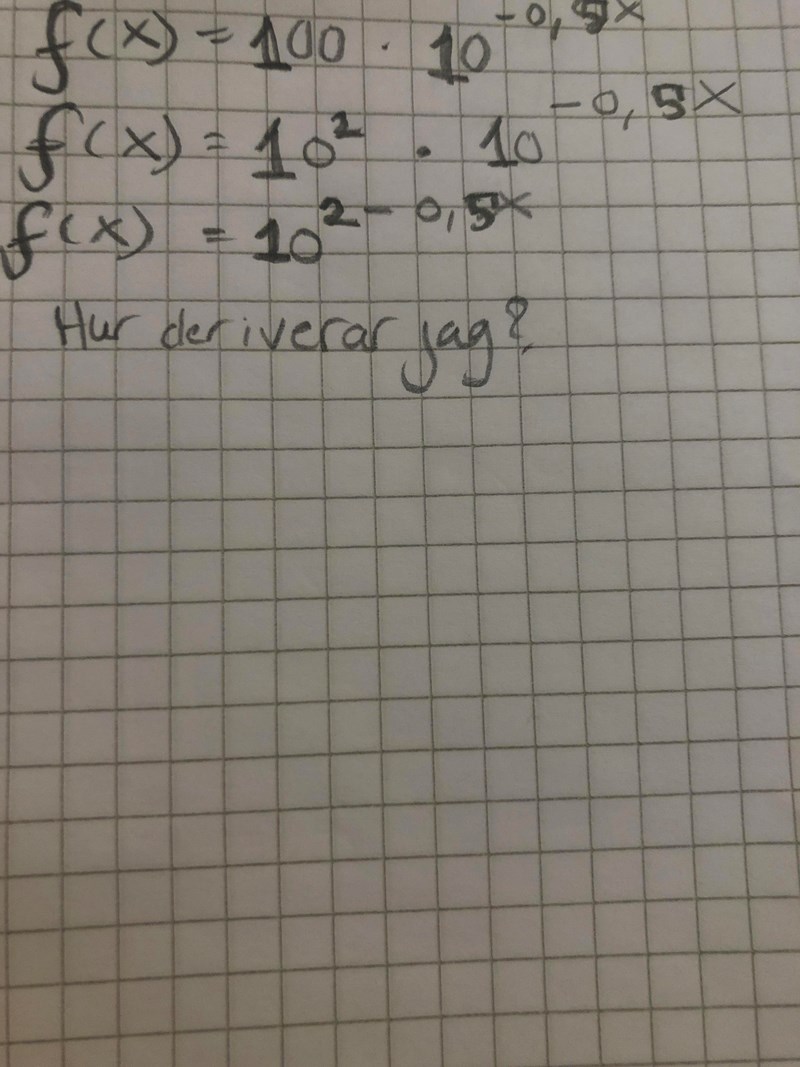 f(x) = 100 · 10^-0,5x
f(x) = 10² · 10^-0,5x
f(x) = 10^2-0,5x
Hur deriverar jag?